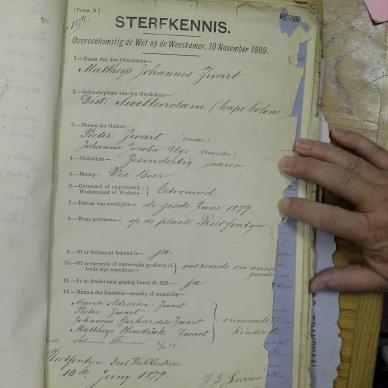 [VORM A.]
STERFKENNIS.
Overeenkomstig de Wet op de Weeskamer, 10 November 1869.
1.—Naam van den Overledene—
Matthys Johannes Zwart
2.—Geboorteplaats van den Overledene—
Dist: Swellendam (Cape Colony
3.—Namen der Ouders—
Pieter Zwart (vader)
Johanna Jacoba Uys (moeder)
4.—Ouderdom— Zesendertig jaaren.
5.—Beroep— Vee Boer
6.—Getrouwd of ongetrouwd— Weduwenaar of Weduwe— } Getrouwd
7.—Datum van overlijden— de zesde June 1879
8.—Waar gestorven— op de plaats Rietfontyn
9.—Of er testament bekend is— ja
10.—Of er roerende en onroerende goederen of beide zijn nagelaten— } roerende en onroe goederen
11.—Is de boedel naar gissing boven de £ ja
12.—Namen der kinderen—mondig of onmondig—
Maria Adriana Zwart
Pieter Zwart
Johannes Zwart
Matthys Hendrik Zwart
} onmondig kinderen
Rietfontyn Dist
10de Juny 1879